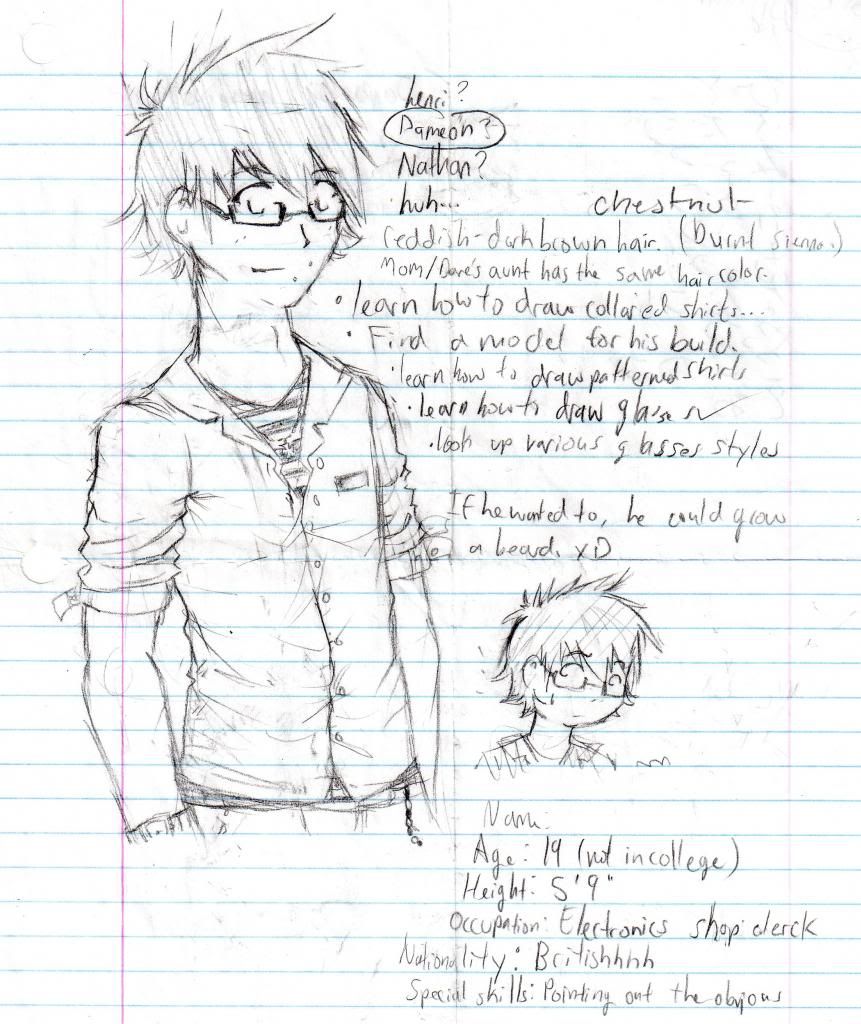 henri?
Dameon?
Nathan?
huh...
chestnut
reddish-dark brown hair. (Burnt sienna.)
Mom/Dave's aunt has the same hair color.
• learn how to draw collared shirts...
• Find a model for his build.
• learn how to draw patterned shirts
• learn how to draw glasses ✓
• look up various glasses styles
If he wanted to, he could grow
a beard. XD
Name:
Age: 19 (not in college)
Height: 5'9"
Occupation: Electronics shop clerck
Nationality: Britishhhh
Special skills: Pointing out the obvious